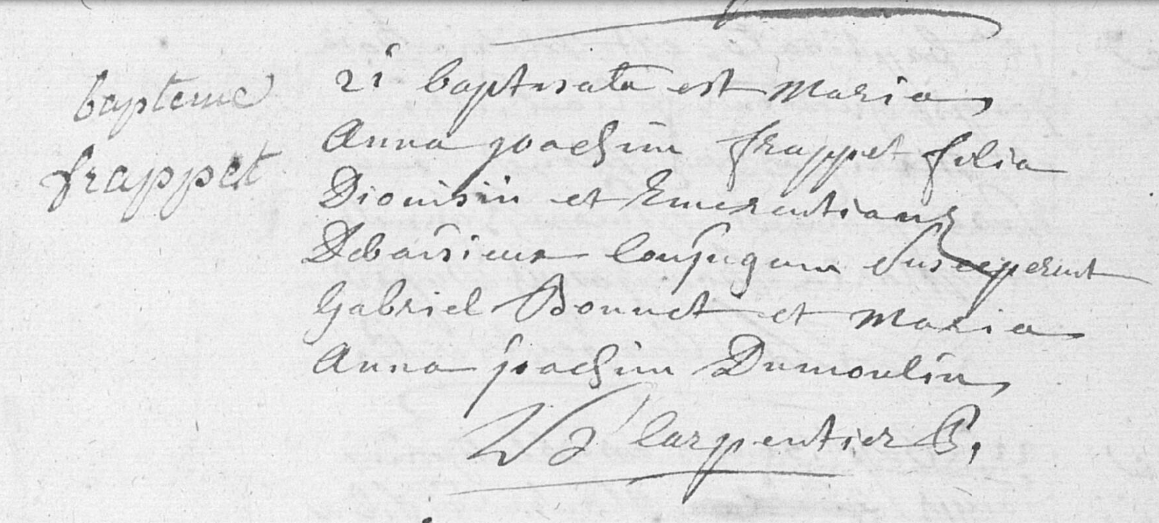 bapteme
frappet
21 baptisata est Maria
Anna joachim frappet filia
Dionisii et Emerentiane
Debaisieux conjugum Susceperunt
Gabriel Bonnet et Maria
Anna joachim Dumoulin,
carpentier P.